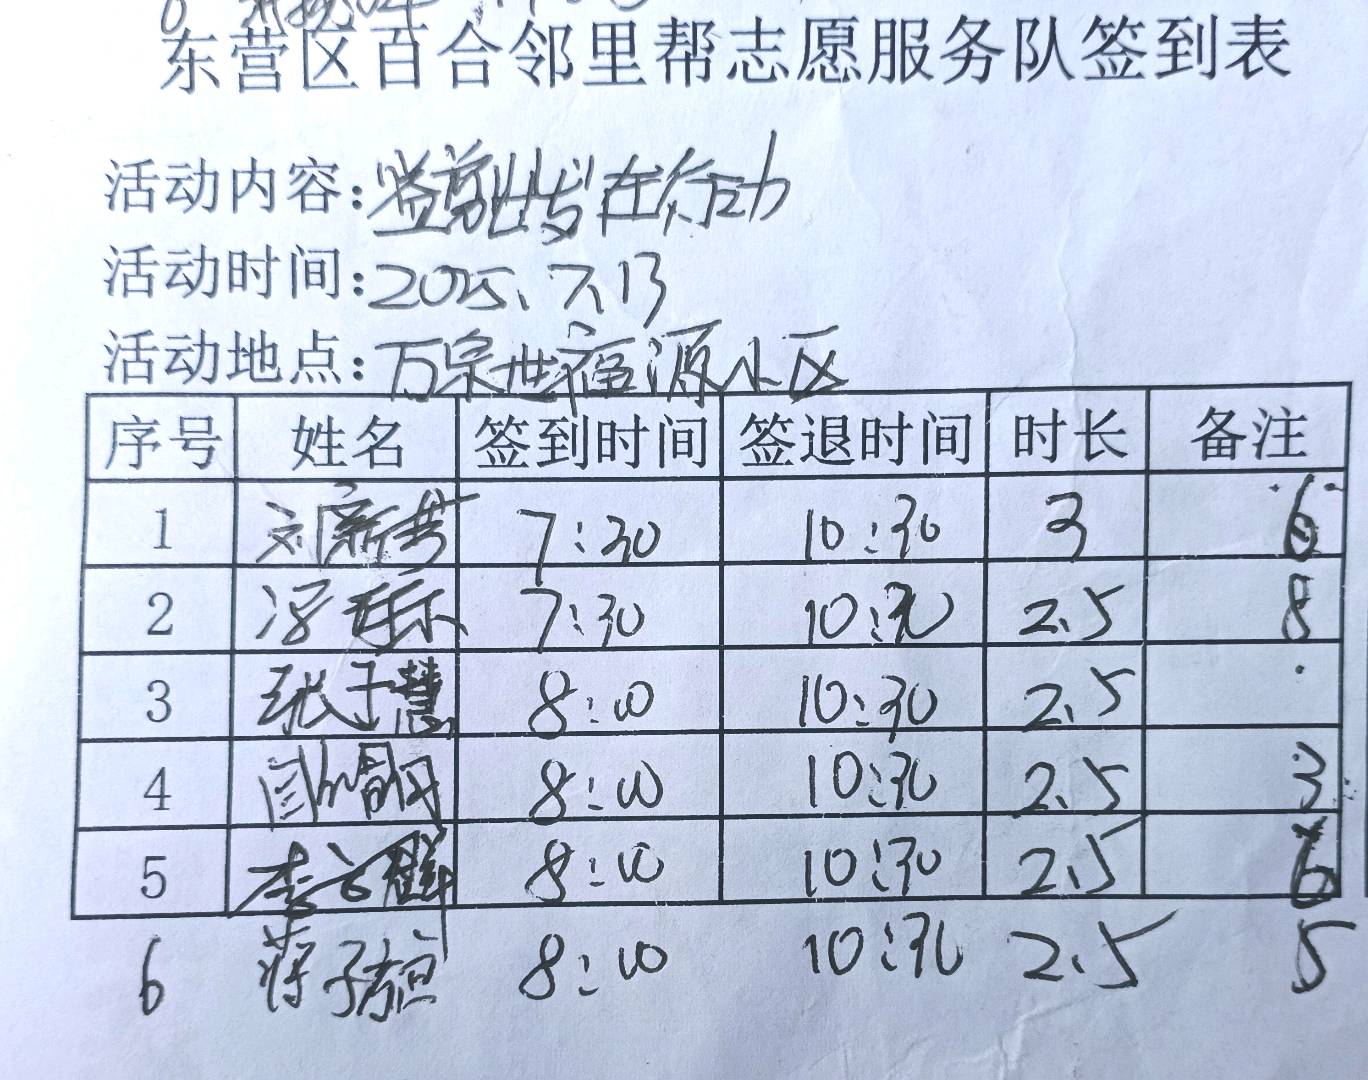 东营区百合邻里帮志愿服务队签到表
活动内容：益剪 在行动
活动时间：2025、7、13
活动地点：万宗世福源小区
序号 姓名 签到时间 签退时间 时长 备注
1 刘新芳 7:30 10:30 3 6
2 冯 乐 7:30 10:30 2.5 8
3 张子慧 8:00 10:30 2.5
4 8:00 10:30 2.5 3
5 李云群 8:00 10:30 2.5 6
6 蒋子 8:00 10:30 2.5 5